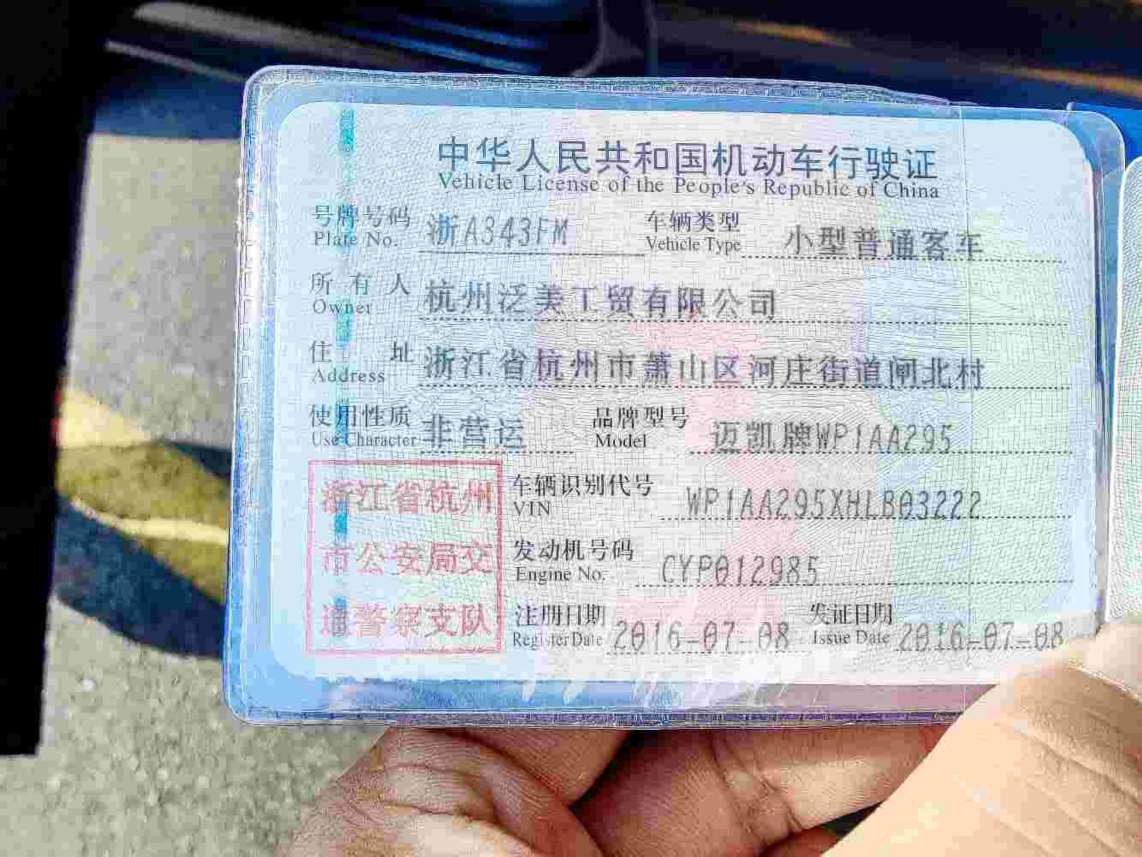 中华人民共和国机动车行驶证
Vehicle License of the People's Republic of China
号牌号码 浙A343FM 车辆类型 小型普通客车
Plate No. Vehicle Type
所有人 杭州泛美工贸有限公司
Owner
住址 浙江省杭州市萧山区河庄街道闸北村
Address
使用性质 非营运 品牌型号 迈凯牌WP1AA295
Use Character Model
浙江省杭州 车辆识别代号 WP1AA295XHLB03222
VIN
市公安局交 发动机号码 CYP012985
Engine No.
通警察支队 注册日期 2016-07-08 发证日期 2016-07-08
Register Date Issue Date